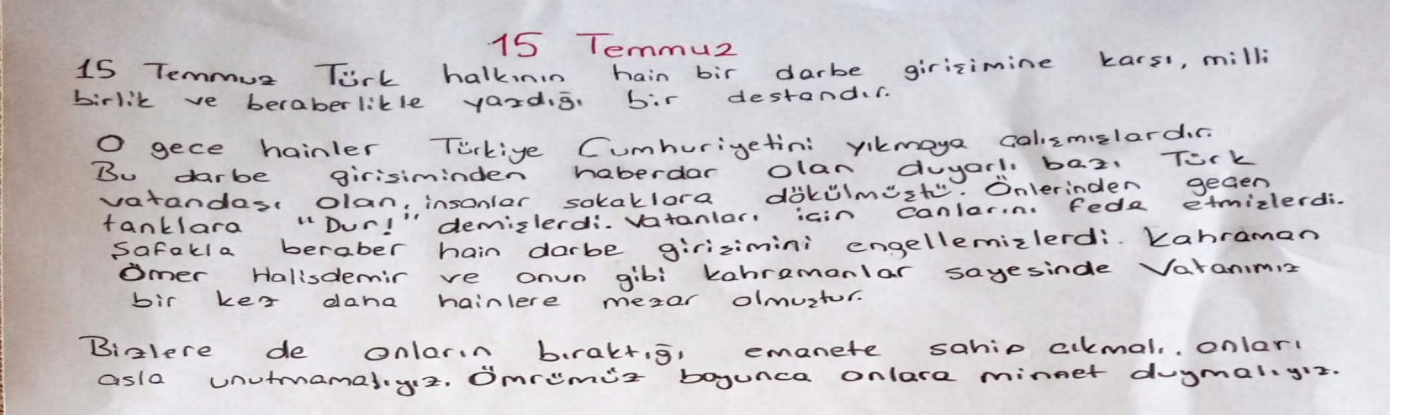 15 Temmuz
15 Temmuz Türk halkının hain bir darbe girişimine karşı, milli
birlik ve beraberlikle yazdığı bir destandır.
O gece hainler Türkiye Cumhuriyetini yıkmaya çalışmışlardır.
Bu darbe girişiminden haberdar olan duyarlı bazı Türk
vatandaşı olan, insanlar sokaklara dökülmüştü. Önlerinden geçen
tanklara "Dur!" demişlerdi. Vatanları için canlarını feda etmişlerdi.
Şafakla beraber hain darbe girişimini engellemişlerdi. Kahraman
Ömer Halisdemir ve onun gibi kahramanlar sayesinde Vatanımız
bir kez daha hainlere mezar olmuştur.
Bizlere de onların bıraktığı emanete sahip çıkmalı, onları
asla unutmamalıyız. Ömrümüz boyunca onlara minnet duymalıyız.